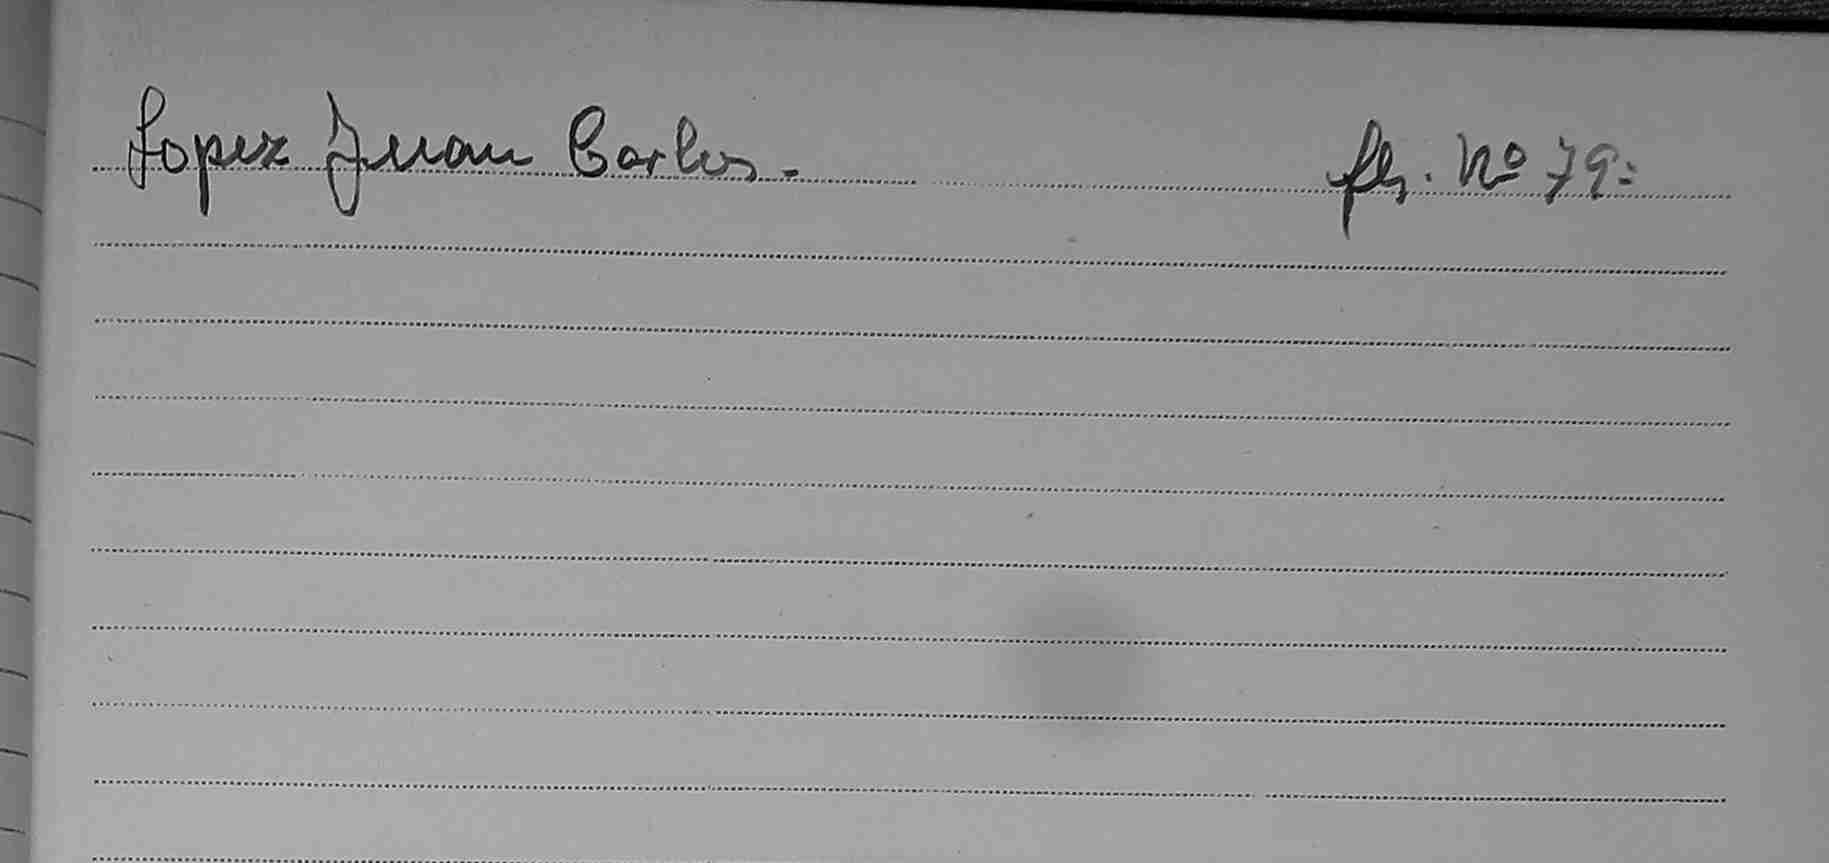 Lopez Juan Carlos.- fls. Nº 79: